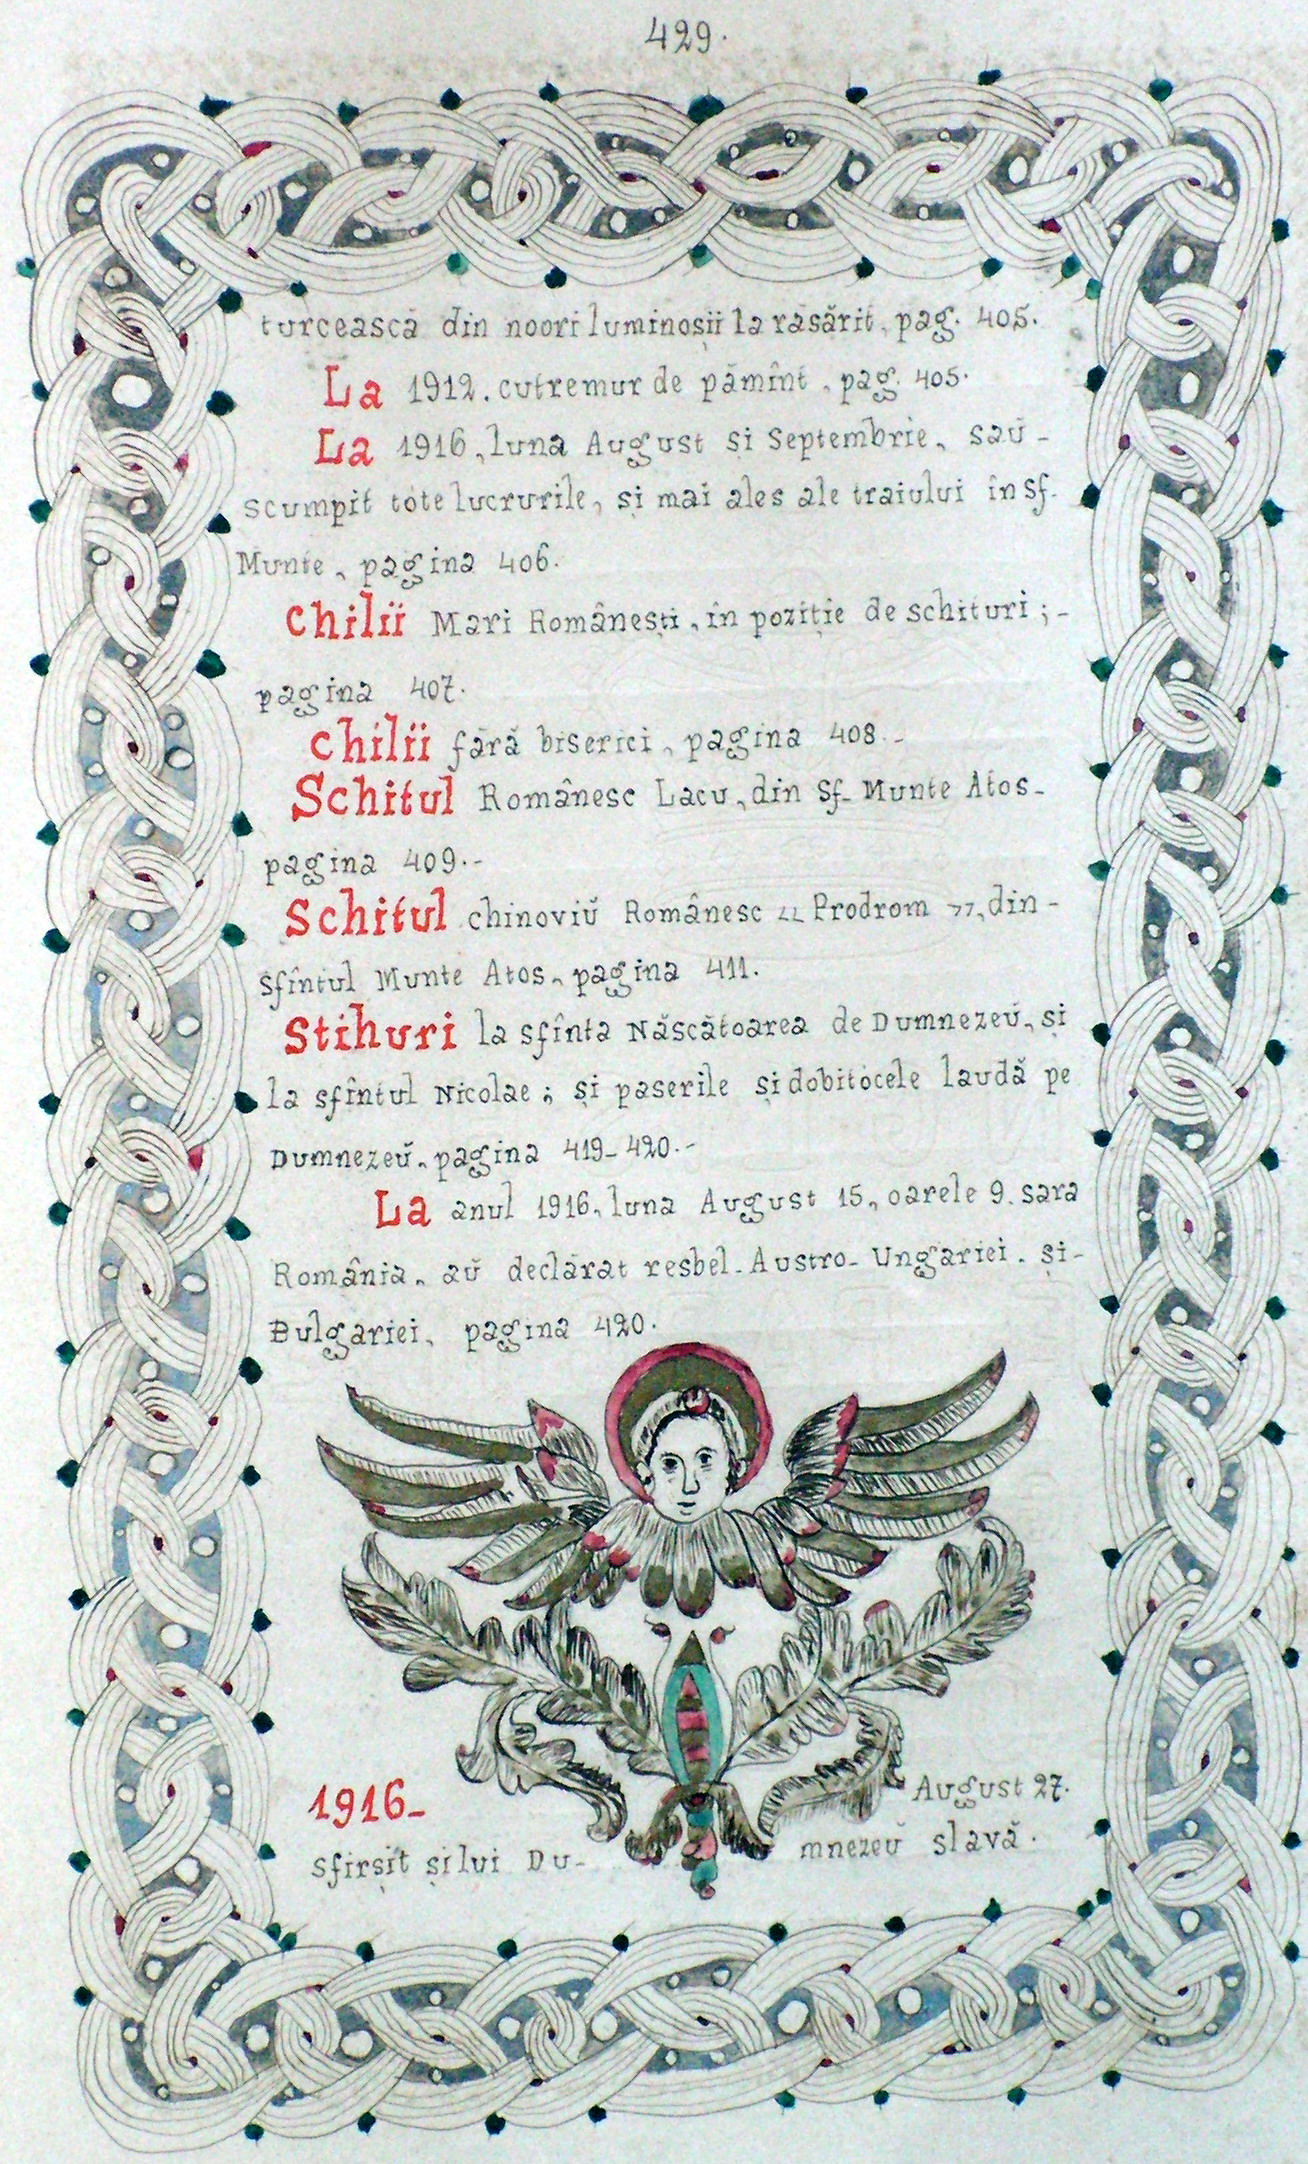 429.
turcească din noori luminoșii la răsărit, pag. 405.
La 1912. cutremur de pămînt, pag. 405.
La 1916, luna August și Septembrie, saŭ-
scumpit tóte lucrurile, și mai ales ale traiului în Sf.
Munte, pagina 406.
Chilii Mari Românești, în poziție de schituri;-
pagina 407.
Chilii fără biserici, pagina 408.-
Schitul Românesc Lacu, din Sf- Munte Atos-
pagina 409.-
Schitul chinoviŭ Românesc „Prodrom”, din-
sfîntul Munte Atos, pagina 411.
Stihuri la sfînta Născătoarea de Dumnezeŭ, și
la sfîntul Nicolae; și paserile și dobitócele laudă pe
Dumnezeŭ, pagina 419-420.-
La anul 1916, luna August 15, oarele 9. sara
România, aŭ declarat resbel-Austro-Ungariei. și-
Bulgariei, pagina 420.
1916- August 27.
Sfirșit și lui Du- mnezeŭ slavă.